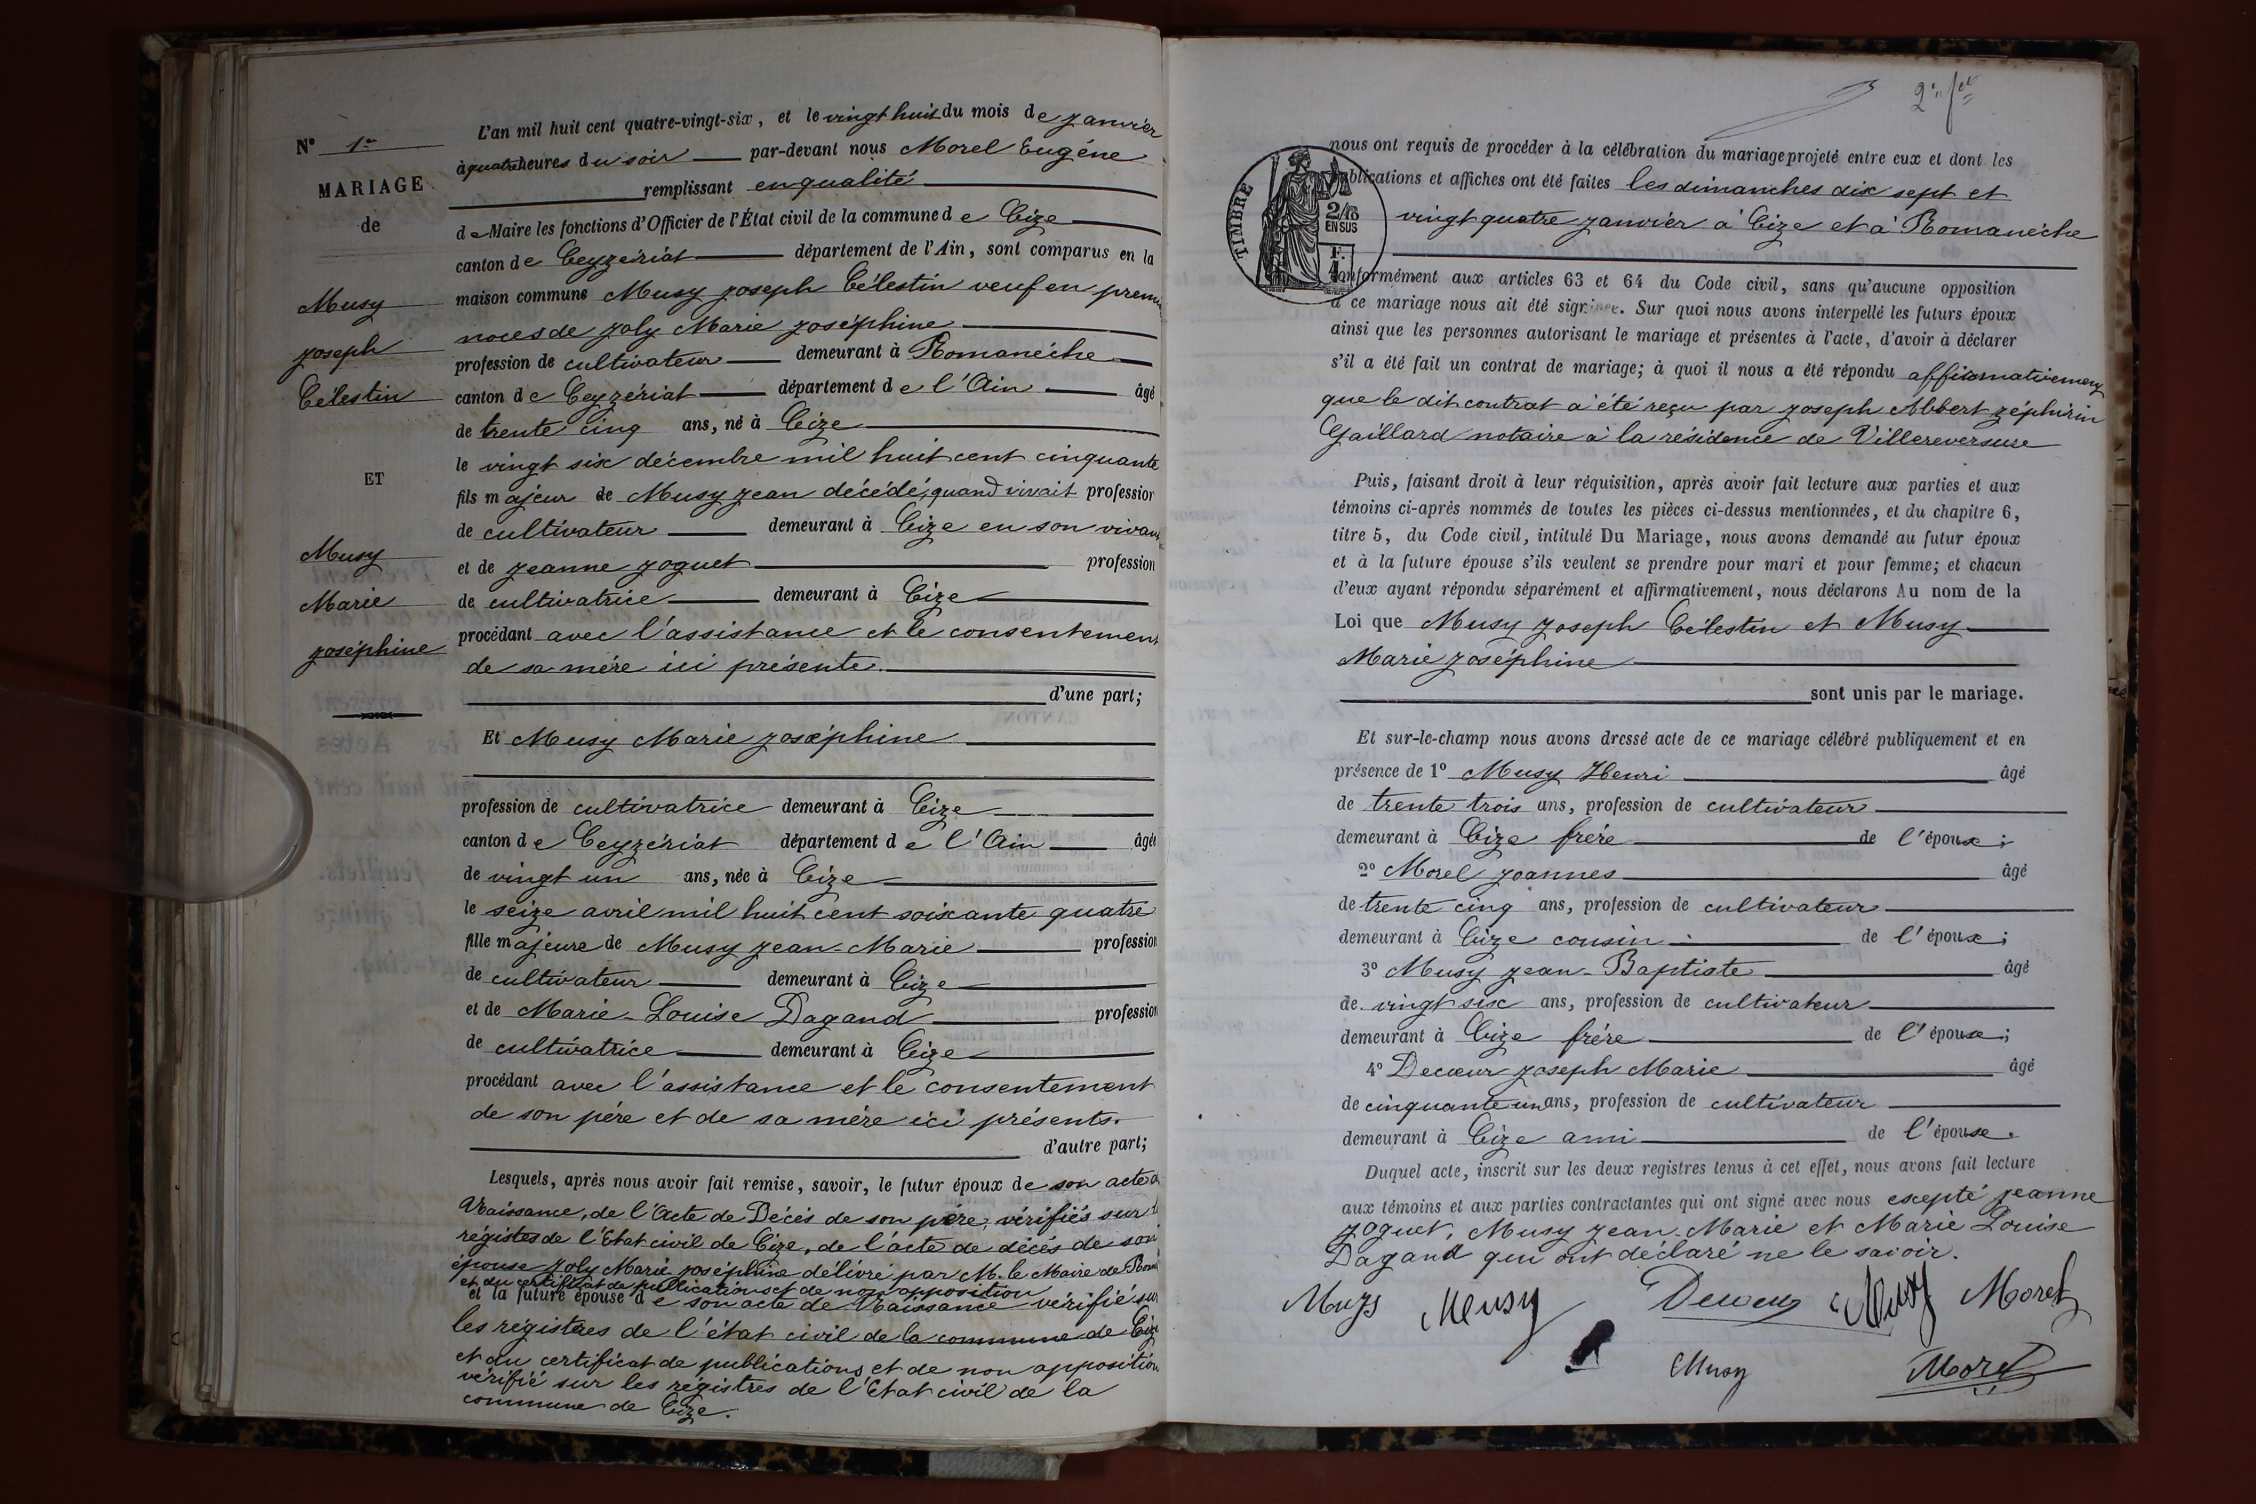 N° 1er
MARIAGE
de
Musy
Joseph
Célestin
ET
Musy
Marie
Joséphine
L'an mil huit cent quatre-vingt-six, et le vingt huit du mois de Janvier
à quatre heures du soir par-devant nous Morel Eugéne
remplissant en qualité
de Maire les fonctions d'Officier de l'État civil de la commune de Cize
canton de Ceyzériat département de l'Ain, sont comparus en la
maison commune Musy Joseph Célestin veuf en premi
noces de Joly Marie Joséphine
profession de cultivateur demeurant à Romanéche
canton de Ceyzériat département de l'Ain âgé
de trente cinq ans, né à Cize
le vingt six décembre mil huit cent cinquante
fils majeur de Musy Jean décédé, quand vivait profession
de cultivateur demeurant à Cize en son vivan
et de Jeanne Joguet profession
de cultivatrice demeurant à Cize
procédant avec l'assistance et le consentement
de sa mére ici présente.
d'une part;
Et Musy Marie Joséphine
profession de cultivatrice demeurant à Cize
canton de Ceyzériat département de l'Ain âgée
de vingt un ans, née à Cize
le seize avril mil huit cent soixante quatre
fille majeure de Musy Jean-Marie profession
de cultivateur demeurant à Cize
et de Marie-Louise Dagand profession
de cultivatrice demeurant à Cize
procédant avec l'assistance et le consentement
de son pére et de sa mére ici présents.
d'autre part;
Lesquels, après nous avoir fait remise, savoir, le futur époux de son acte d
Naissance, de l'Acte de Décés de son pére, vérifiés sur l
régistes de l'Etat civil de Cize, de l'acte de décés de son
épouse Joly Marie Joséphine délivré par M. le Maire de Rom
et du certificat de publications et de non opposition
et la future épouse de son acte de Naissance vérifié su
les régistres de l'état civil de la commune de Cize
et du certificat de publications et de non opposition
vérifié sur les régistres de l'Etat civil de la
commune de Cize.
2e fet
nous ont requis de procéder à la célébration du mariage projeté entre eux et dont les
publications et affiches ont été faites les dimanches dix sept et
vingt quatre Janvier à Cize et à Romanéche
TIMBRE
2/10
EN SUS
F.
1
conformément aux articles 63 et 64 du Code civil, sans qu'aucune opposition
à ce mariage nous ait été signifiée. Sur quoi nous avons interpellé les futurs époux
ainsi que les personnes autorisant le mariage et présentes à l'acte, d'avoir à déclarer
s'il a été fait un contrat de mariage; à quoi il nous a été répondu affirmativement
que le dit contrat a été reçu par Joseph Albert Zéphirin
Gaillard notaire à la résidence de Villereversure
Puis, faisant droit à leur réquisition, après avoir fait lecture aux parties et aux
témoins ci-après nommés de toutes les pièces ci-dessus mentionnées, et du chapitre 6,
titre 5, du Code civil, intitulé Du Mariage, nous avons demandé au futur époux
et à la future épouse s'ils veulent se prendre pour mari et pour femme; et chacun
d'eux ayant répondu séparément et affirmativement, nous déclarons Au nom de la
Loi que Musy Joseph Célestin et Musy
Marie Joséphine
sont unis par le mariage.
Et sur-le-champ nous avons dressé acte de ce mariage célébré publiquement et en
présence de 1° Musy Henri âgé
de trente trois ans, profession de cultivateur
demeurant à Cize frére de l'époux;
2° Morel Joannes âgé
de trente cinq ans, profession de cultivateur
demeurant à Cize cousin de l'époux;
3° Musy Jean-Baptiste âgé
de vingt six ans, profession de cultivateur
demeurant à Cize frére de l'épouse;
4° Decœur Joseph Marie âgé
de cinquante un ans, profession de cultivateur
demeurant à Cize ami de l'épouse.
Duquel acte, inscrit sur les deux registres tenus à cet effet, nous avons fait lecture
aux témoins et aux parties contractantes qui ont signé avec nous excepté Jeanne
Joguet, Musy Jean-Marie et Marie Louise
Dagand qui ont déclaré ne le savoir.
Musy Musy Decœur Musy Morel
Musy Morel